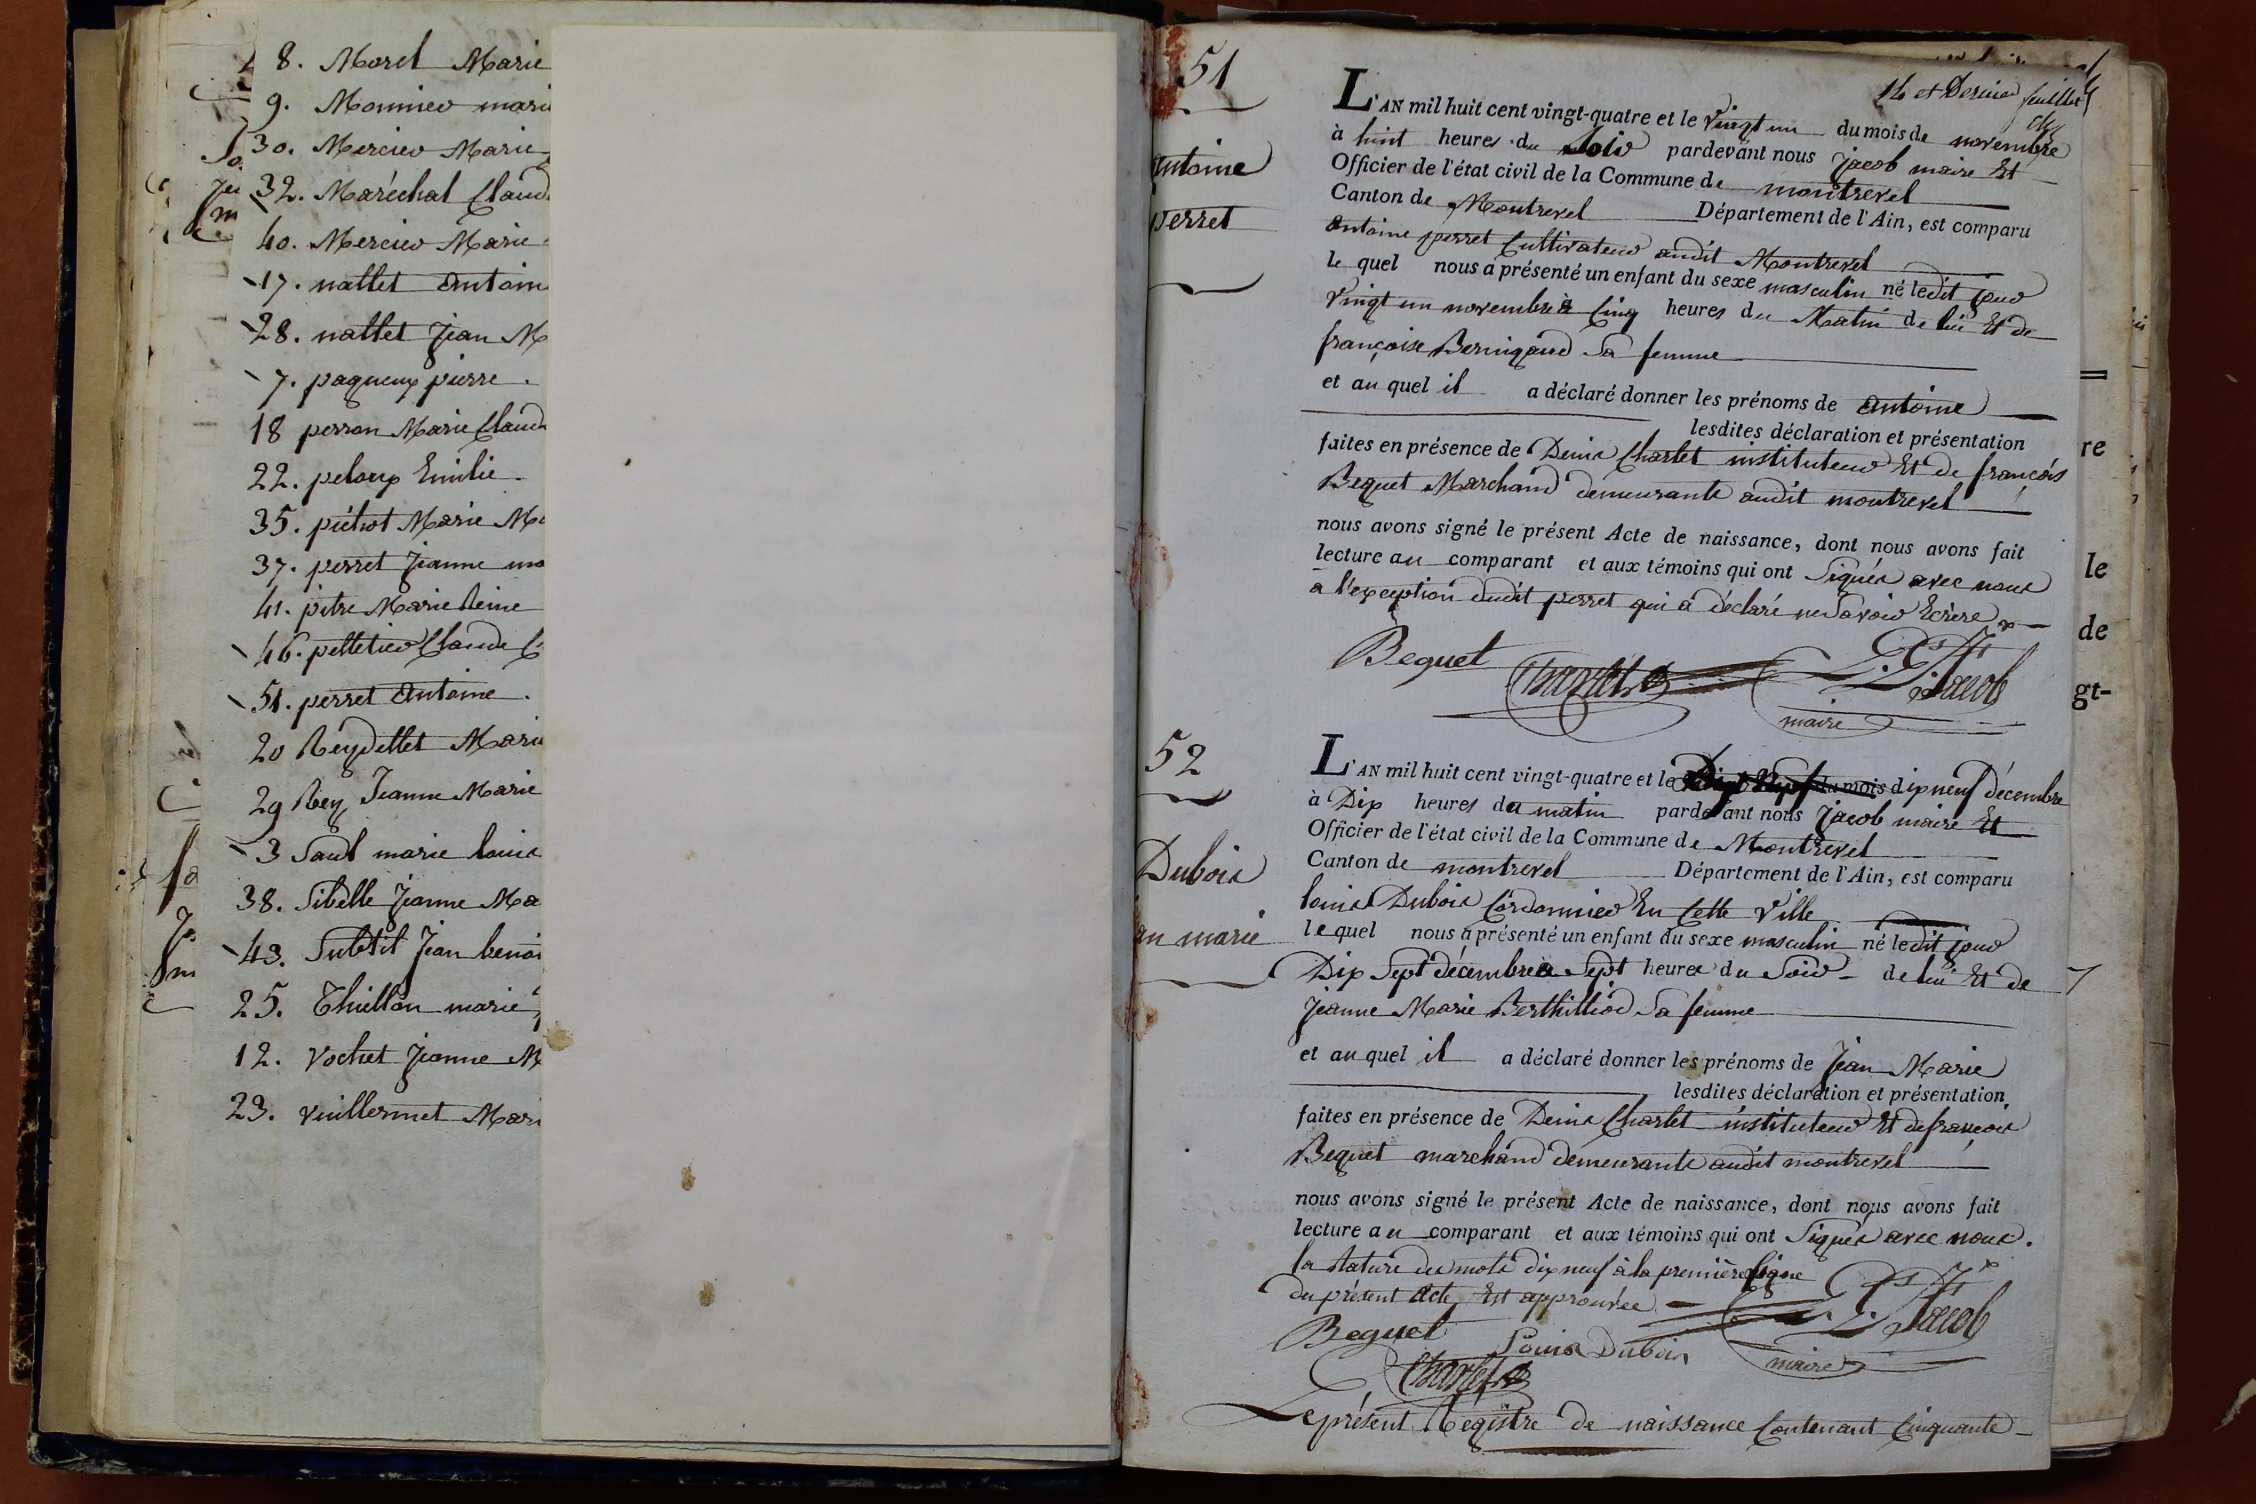 8. Morel Marie
9. Monnier mari
30. Mercier Marie
32. Maréchal Claud
40. Mercier Marie
17. nallet antoin
28. nallet Jean M
7. paqueux pierre.
18 perron Marie Claud
22. peloux Emilie.
35. pichot Marie Ma
37. perret Jeanne ma
41. pitre Marie Reine
46. pelletier Claude C
51. perret antoine.
20 Reydellet Mari
29 Rey Jeanne Marie
3 Saul marie louis
38. Sibelle Jeanne Ma
43. Subtil Jean benoi
25. Thiellon marie
12. Vochet Jeanne M
23. Vuillermet Mari
51
antoine
perret
14 et Dernier feuillet
L'AN mil huit cent vingt-quatre et le Vingt un du mois de novembre
à huit heures du Soir pardevant nous Jacob maire Et
Officier de l'état civil de la Commune de montrevel
Canton de Montrevel Département de l'Ain, est comparu
antoine perret Cultivateur audit Montrevel
le quel nous a présenté un enfant du sexe masculin né ledit jour
Vingt un novembre à Cinq heures du Matin de lui Et de
françoise Bernigaud Sa femme
et au quel il a déclaré donner les prénoms de antoine
lesdites déclaration et présentation
faites en présence de Denis Charlet instituteur Et de françois
Bequet Marchand demeurants audit montrevel
nous avons signé le présent Acte de naissance, dont nous avons fait
lecture au comparant et aux témoins qui ont Signés avec nous
a l'exception dudit perret qui a déclaré ne Savoir Ecrire
Bequet Charlet Jacob
maire
52
Dubois
an marie
L'AN mil huit cent vingt-quatre et le du mois dix neuf décembre
à Dix heures du matin pardevant nous Jacob maire Et
Officier de l'état civil de la Commune de Montrevel
Canton de montrevel Département de l'Ain, est comparu
louis Dubois Cordonnier En Cette Ville
le quel nous a présenté un enfant du sexe masculin né ledit jour
Dix Sept décembre à Sept heures du Soir de lui Et de
Jeanne Marie Berthilliod Sa femme
et au quel il a déclaré donner les prénoms de Jean Marie
lesdites déclaration et présentation
faites en présence de Denis Charlet instituteur Et de françois
Bequet marchand demeurants audit montrevel
nous avons signé le présent Acte de naissance, dont nous avons fait
lecture au comparant et aux témoins qui ont Signés avec nous.
la Rature des mots dix neuf à la première ligne
du présent acte Est approuvée
Bequet Louis Dubois Jacob
Charlet maire
Le présent Régistre de naissance Contenant Cinquante
re
le
de
gt-